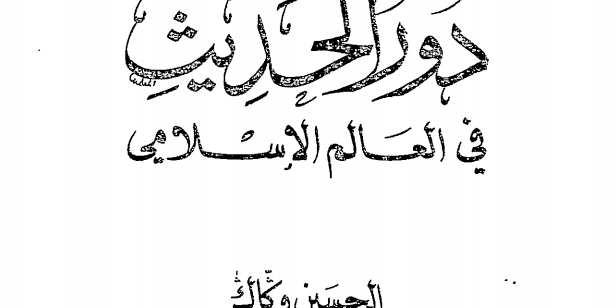 دَور الحَدِيثِ
في العَالم الإسْلامي
الحسَين وكَّاكْ